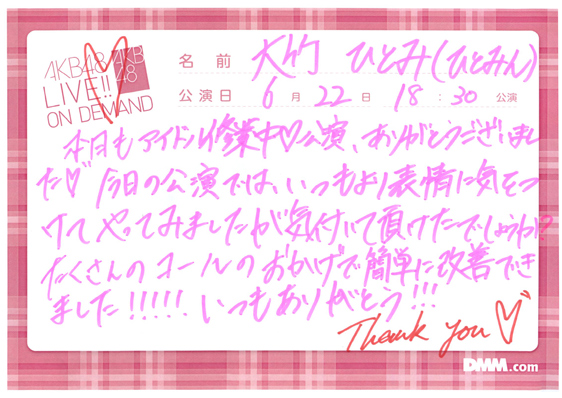 AKB48
LIVE!!
ON DEMAND
AKB
48
名前 大竹 ひとみ(ひとみん)
公演日 6月22日 18:30公演
本日もアイドル修業中♡公演、ありがとうございまし
た♡ 今日の公演では、いつもより表情に気をつ
けてやってみましたが気付いて頂けたでしょうか!?
たくさんのコールのおかげで簡単に改善でき
ました!!!!! いつもありがとう!!!
Thank you♡
DMM.com